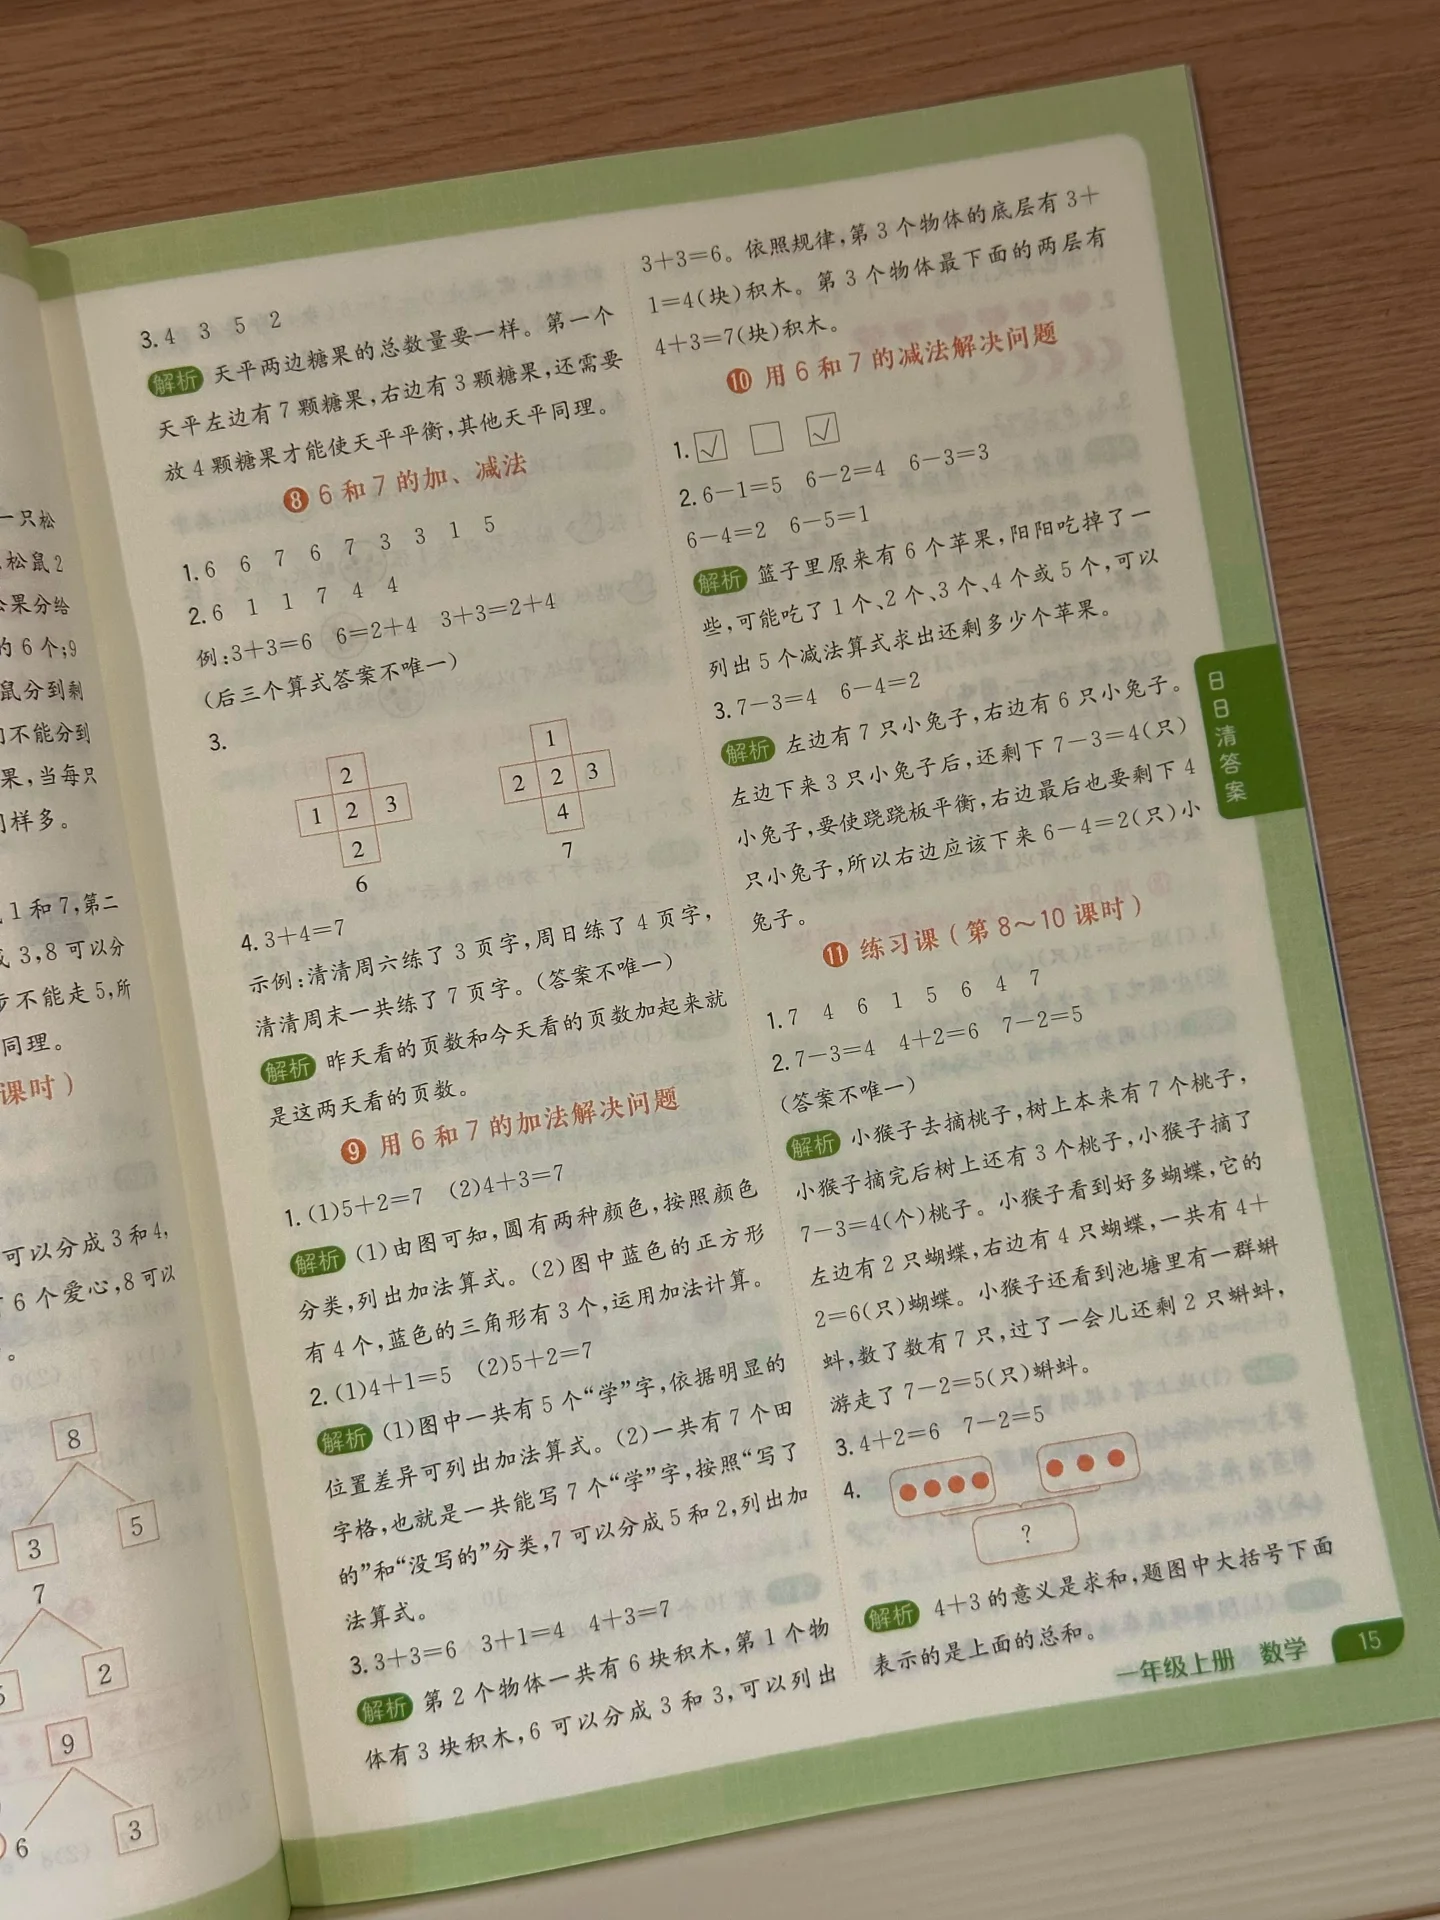 一只松
松鼠2
果分给
的6个;9
鼠分到剩
们不能分到
果,当每只
同样多。
1和7,第二
成3,8可以分
步不能走5,所
同理。
课时)
可以分成3和4,
6个爱心,8可以
。
8
3 5
7
2
9
6 3
3.4 3 5 2
解析 天平两边糖果的总数量要一样。第一个
天平左边有7颗糖果,右边有3颗糖果,还需要
放4颗糖果才能使天平平衡,其他天平同理。
8 6和7的加、减法
1.6 6 7 6 7 3 3 1 5
2.6 1 1 7 4 4
例:3+3=6 6=2+4 3+3=2+4
(后三个算式答案不唯一)
3.
2
1 2 3
2
6
1
2 2 3
4
7
4.3+4=7
示例:清清周六练了3页字,周日练了4页字,
清清周末一共练了7页字。(答案不唯一)
解析 昨天看的页数和今天看的页数加起来就
是这两天看的页数。
9 用6和7的加法解决问题
1.(1)5+2=7 (2)4+3=7
解析 (1)由图可知,圆有两种颜色,按照颜色
分类,列出加法算式。(2)图中蓝色的正方形
有4个,蓝色的三角形有3个,运用加法计算。
2.(1)4+1=5 (2)5+2=7
解析 (1)图中一共有5个“学”字,依据明显的
位置差异可列出加法算式。(2)一共有7个田
字格,也就是一共能写7个“学”字,按照“写了
的”和“没写的”分类,7可以分成5和2,列出加
法算式。
3.3+3=6 3+1=4 4+3=7
解析 第2个物体一共有6块积木,第1个物
体有3块积木,6可以分成3和3,可以列出
3+3=6。依照规律,第3个物体的底层有3+
1=4(块)积木。第3个物体最下面的两层有
4+3=7(块)积木。
10 用6和7的减法解决问题
1.√ √
2.6-1=5 6-2=4 6-3=3
6-4=2 6-5=1
解析 篮子里原来有6个苹果,阳阳吃掉了一
些,可能吃了1个、2个、3个、4个或5个,可以
列出5个减法算式求出还剩多少个苹果。
3.7-3=4 6-4=2
解析 左边有7只小兔子,右边有6只小兔子。
左边下来3只小兔子后,还剩下7-3=4(只)
小兔子,要使跷跷板平衡,右边最后也要剩下4
只小兔子,所以右边应该下来6-4=2(只)小
兔子。
11 练习课(第8~10课时)
1.7 4 6 1 5 6 4 7
2.7-3=4 4+2=6 7-2=5
(答案不唯一)
解析 小猴子去摘桃子,树上本来有7个桃子,
小猴子摘完后树上还有3个桃子,小猴子摘了
7-3=4(个)桃子。小猴子看到好多蝴蝶,它的
左边有2只蝴蝶,右边有4只蝴蝶,一共有4+
2=6(只)蝴蝶。小猴子还看到池塘里有一群蝌
蚪,数了数有7只,过了一会儿还剩2只蝌蚪,
游走了7-2=5(只)蝌蚪。
3.4+2=6 7-2=5
4.
?
解析 4+3的意义是求和,题图中大括号下面
表示的是上面的总和。
日日清答案
一年级上册 数学 15